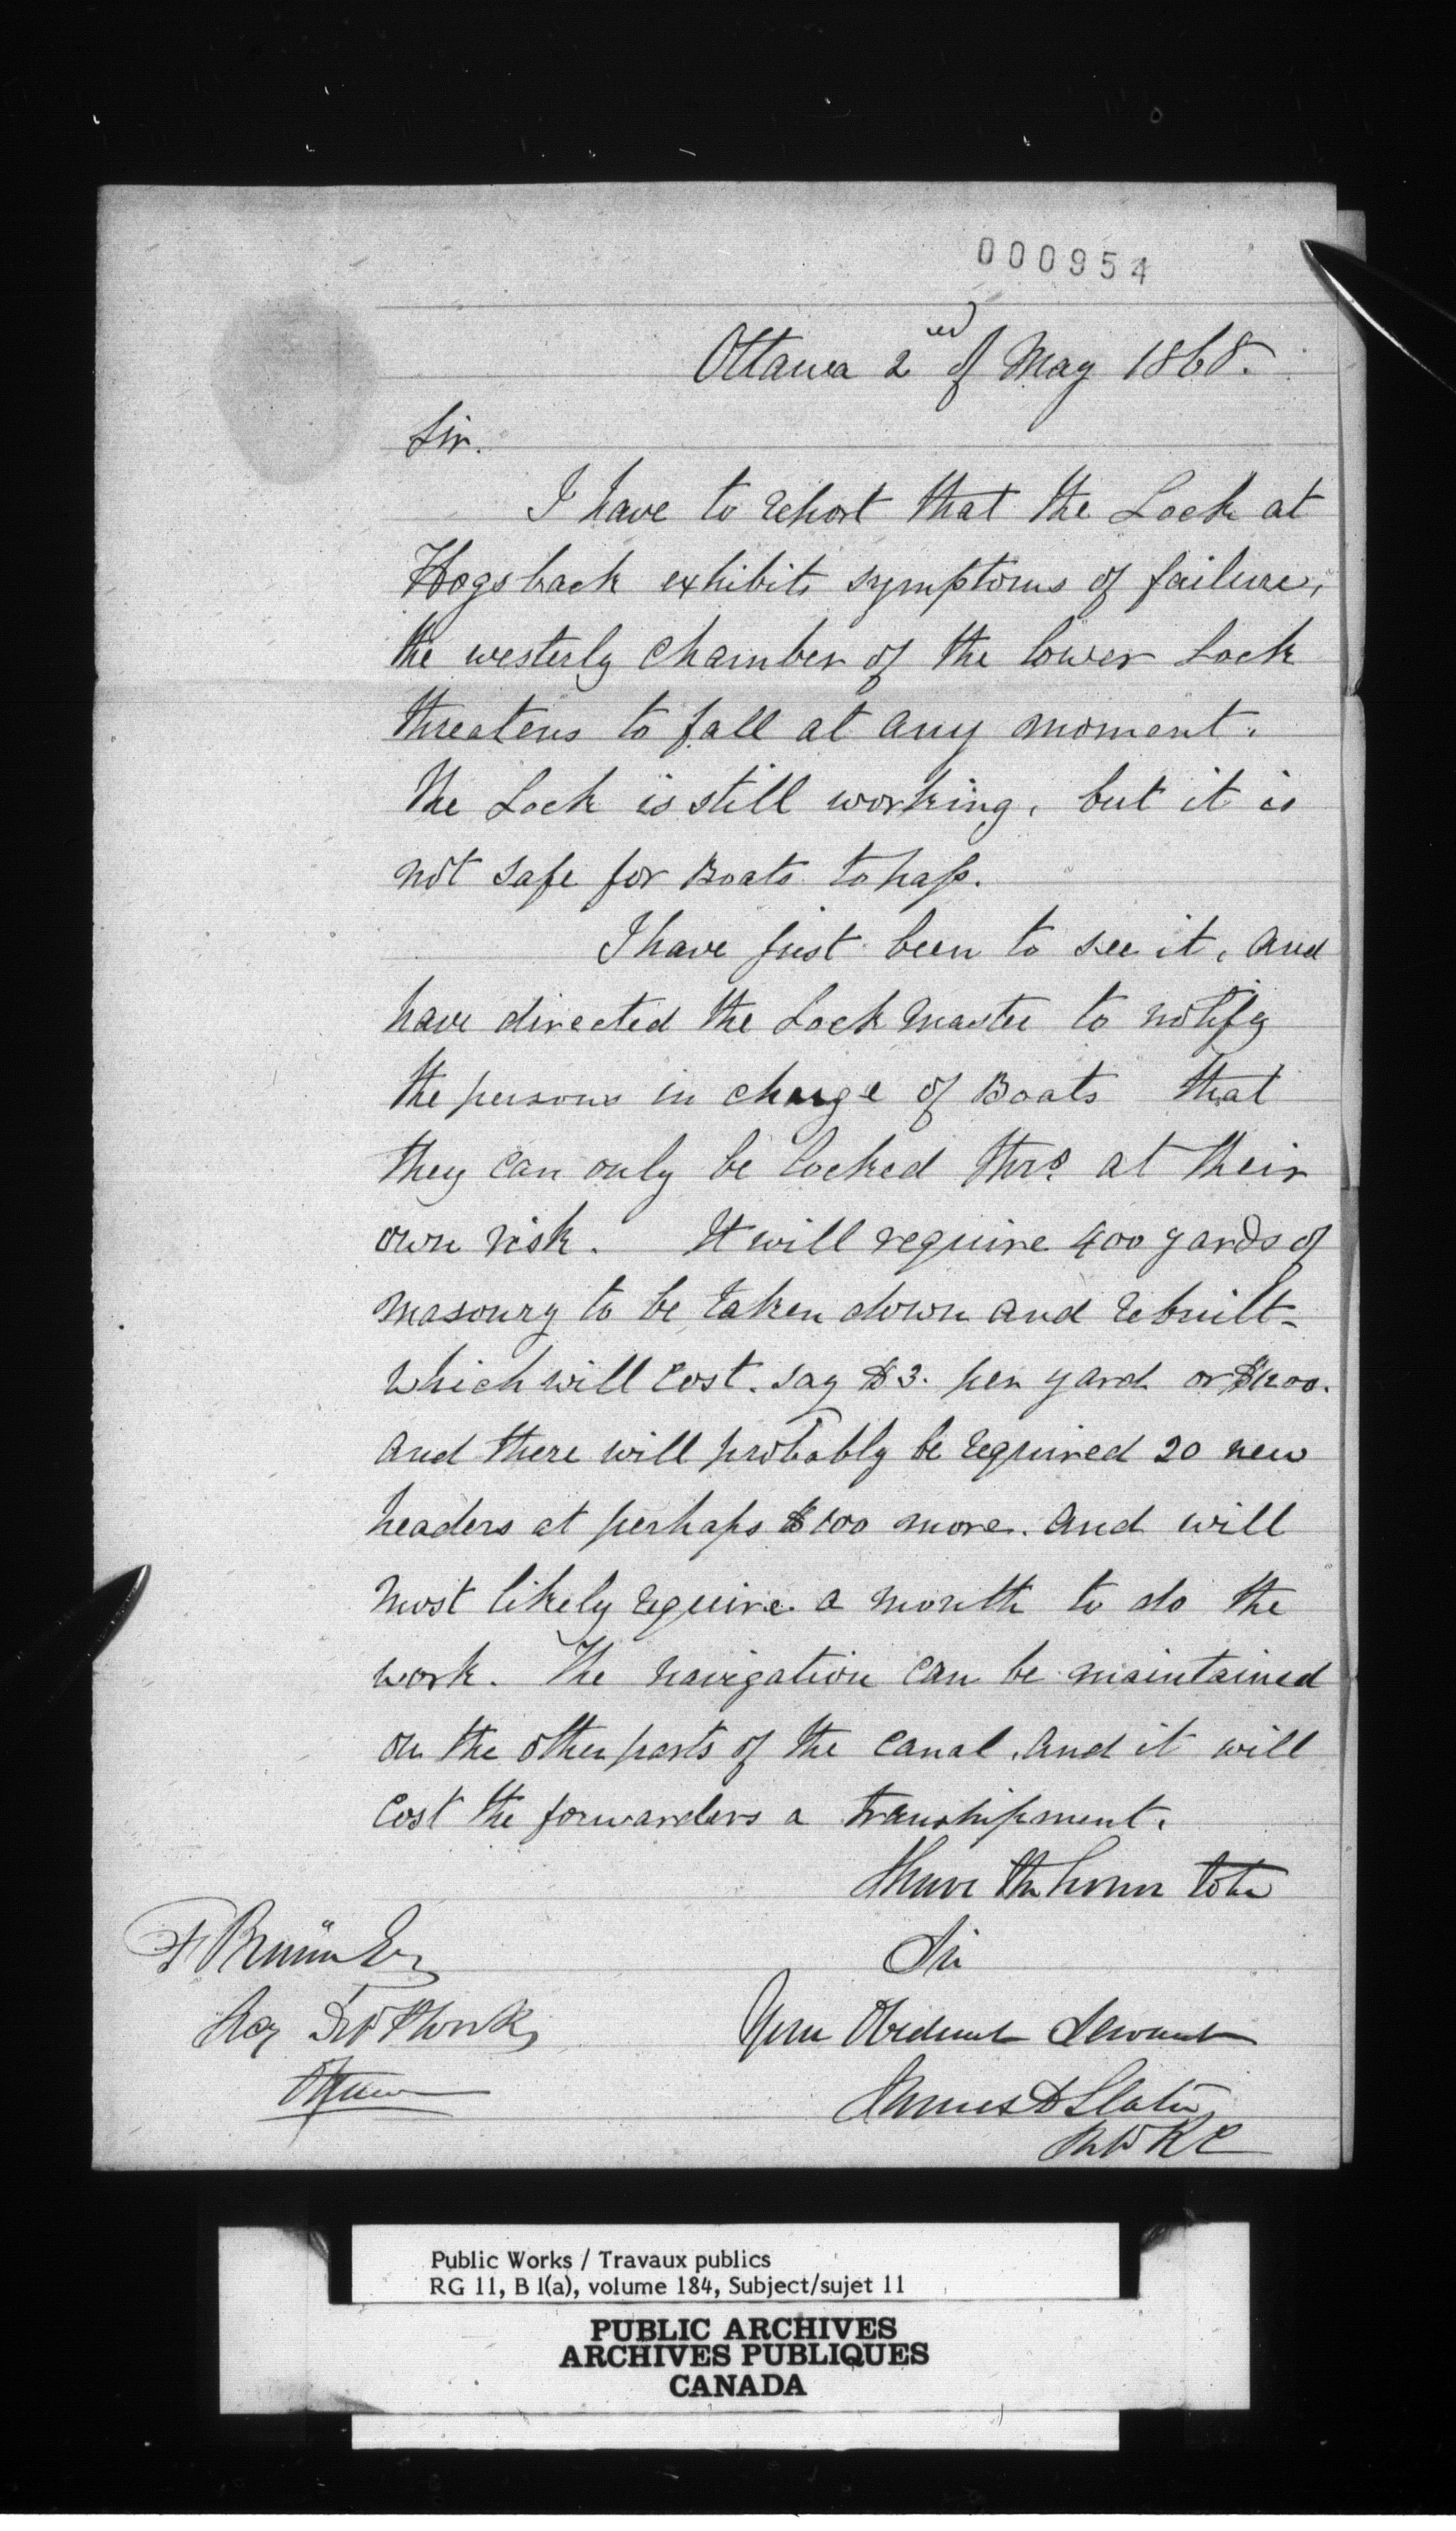 000954
Ottawa 2nd of May 1868.
Sir.
I have to report that the Lock at
Hogsback exhibits symptoms of failure,
the westerly Chamber of the lower Lock
threatens to fall at any moment.
The Lock is still working, but it is
not safe for Boats to pass.
I have just been to see it, and
have directed the Lock Master to notify
the persons in charge of Boats that
they can only be locked thro. at their
own risk. It will require 400 yards of
masonry to be taken down and rebuilt -
which will cost. say $3. per yard or $1200.
and there will probably be required 20 new
headers at perhaps $100 more. and will
most likely require a month to do the
work. The navigation can be maintained
on the other parts of the Canal, and it will
cost the forwarders a transhipment.
I have the honor to be
Sir
Your Obedient Servant
F Braun Esq
Secy
Ottawa
James D Slater
RC
Public Works / Travaux publics
RG 11, B 1(a), volume 184, Subject/sujet 11
PUBLIC ARCHIVES
ARCHIVES PUBLIQUES
CANADA